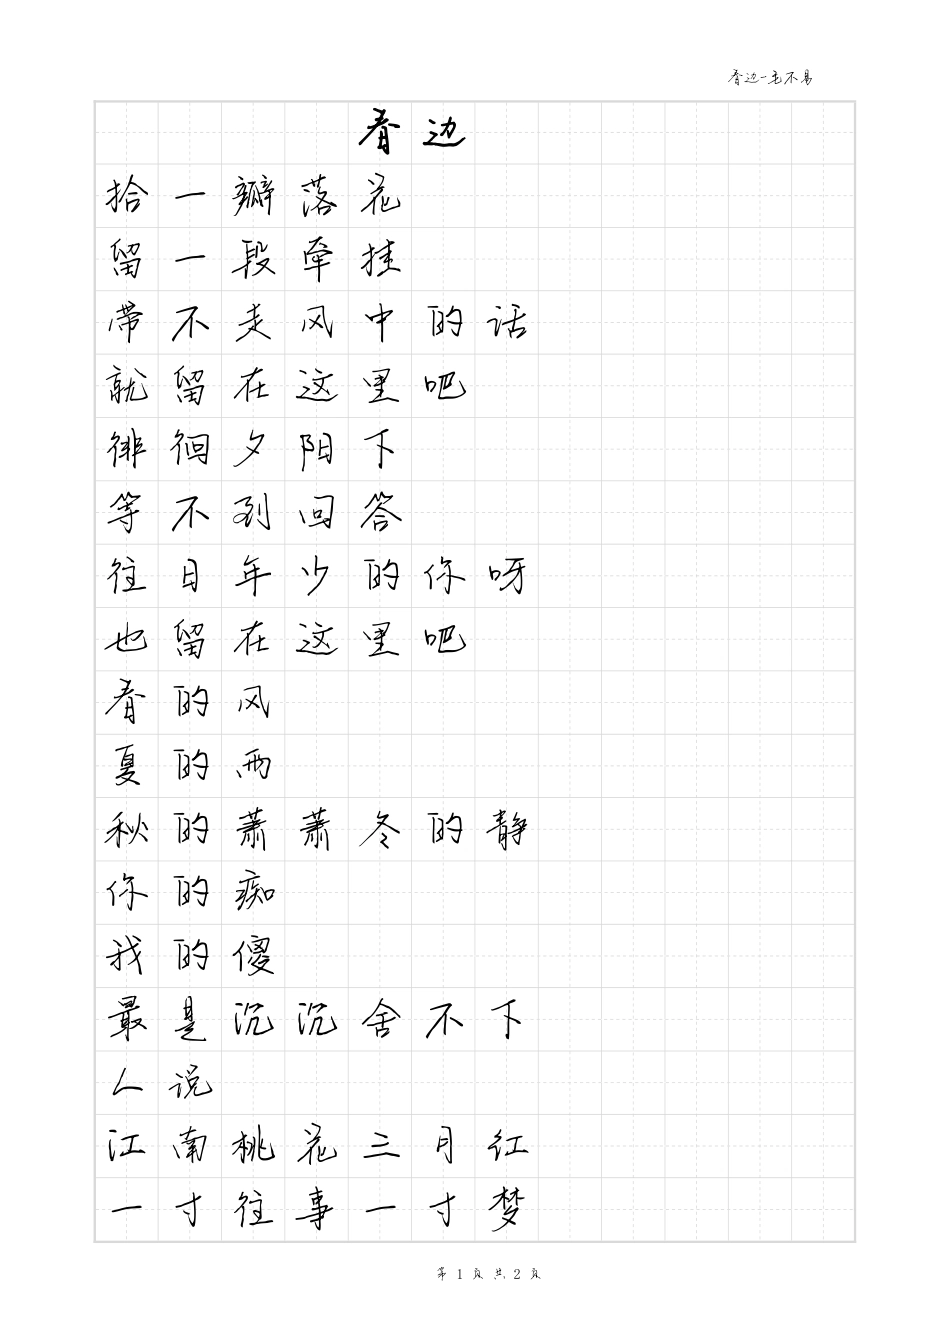 春边-毛不易
春边
拾一瓣落花
留一段牵挂
带不走风中的话
就留在这里吧
徘徊夕阳下
等不到回答
往日年少的你呀
也留在这里吧
春的风
夏的雨
秋的萧萧冬的静
你的痴
我的傻
最是沉沉舍不下
人说
江南桃花三月红
一寸往事一寸梦
第 1 页 共 2 页